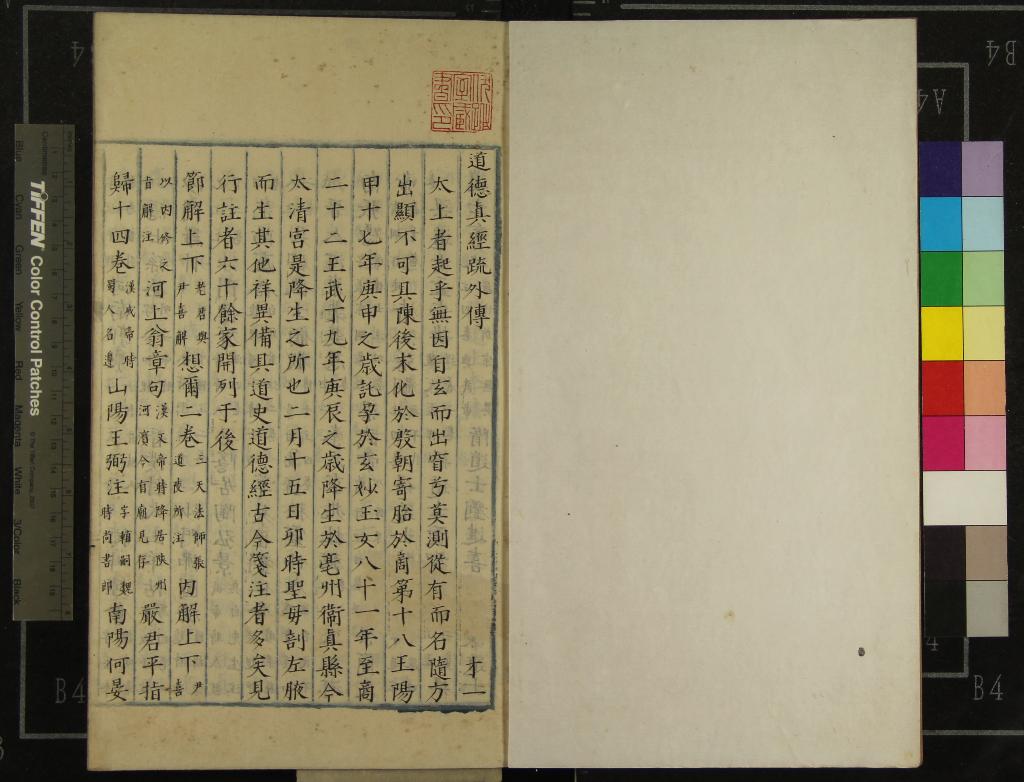 道德真經疏外傳 才一
太上者起乎無因自玄而出窅兮莫測從有而名隨方
出顯不可具陳後末化於殷朝寄胎於啇第十八王陽
甲十七年庚申之歲託孕於玄妙玉女八十一年至啇
二十二王武丁九年庚辰之歲降生於亳州衞真縣今
太清宮是降生之所也二月十五日卯時聖母剖左腋
而生其他祥異備具道史道德經古今箋注者多矣見
行註者六十餘家開列于後
節解上下老君與尹喜解想爾二卷三天法師張道陵所注内解上下尹喜
以内修之旨解注河上翁章句漢文帝時降居陝州河濱今有廟見存嚴君平指
歸十四卷漢成帝時蜀人名遵山陽王弼注字輔嗣魏時尚書郎南陽何晏
TIFFEN Color Control Patches
Blue
Cyan
Green
Yellow
Red
Magenta
White
3/Color
Black
B4
B4
B4
A4